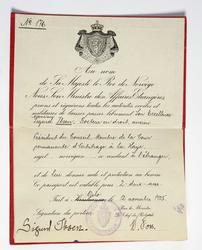 No. 176.
Au nom
de Sa Majesté le Roi de Norvège
Nous Son Ministre des Affaires Étrangères
prions et requérons toutes les autorités civiles et
militaires de laisser passer librement Son Excellence
Sigurd Ibsen, Docteur en droit, ancien
Président du Conseil, Membre de la Cour
permanente d'Arbitrage à la Haye,
sujet norvégien se rendant à l'étranger,
et de lui donner aide et protection au besoin.
Ce passeport est valable pour deux ans.
Oslo
Fait à Kristiania le 12 novembre 1925.
Signature du porteur
Sigurd Ibsen